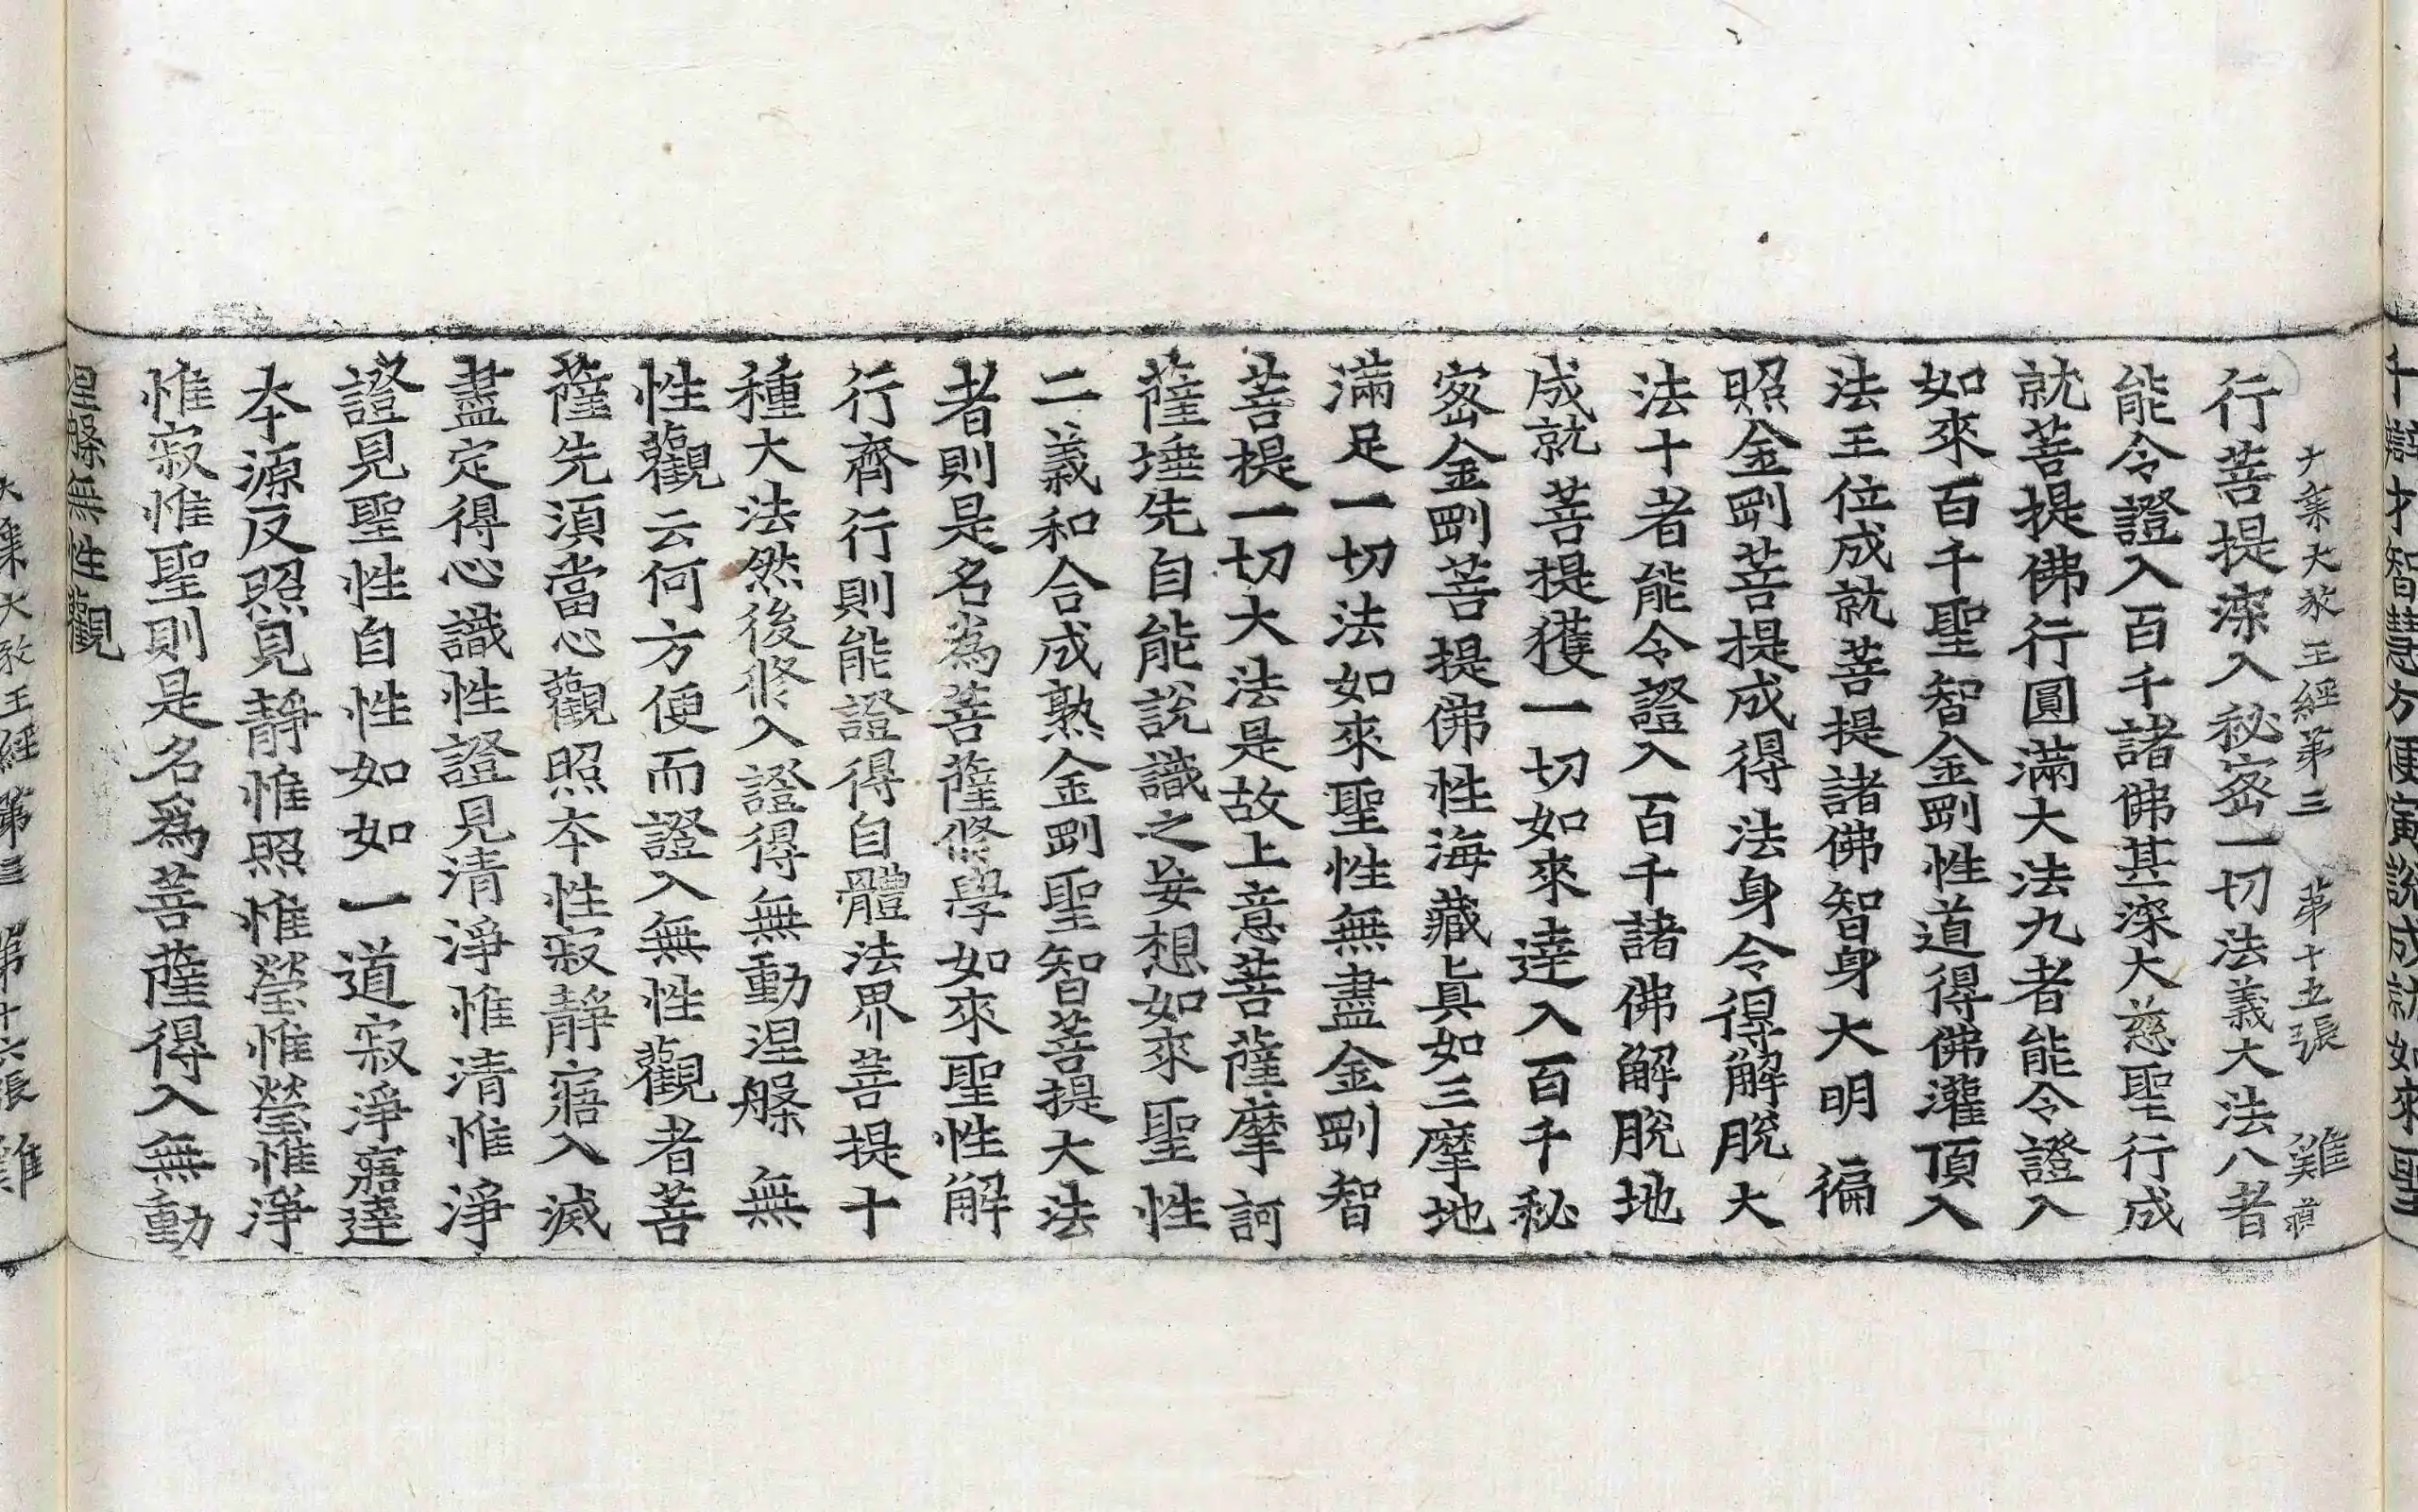 十辯才智慧方便演說成就如來聖
大乘大教王經第三　第十五張　難
行菩提深入秘密一切法義大法八者
能令證入百千諸佛甚深大慈聖行成
就菩提佛行圓滿大法九者能令證入
如來百千聖智金剛性道得佛灌頂入
法王位成就菩提諸佛智身大明徧
照金剛菩提成得法身令得解脫大
法十者能令證入百千諸佛解脫地
成就菩提獲一切如來達入百千秘
密金剛菩提佛性海藏眞如三摩地
滿足一切法如來聖性無盡金剛智
菩提一切大法是故上意菩薩摩訶
薩埵先自能說識之妄想如來聖性
二義和合成熟金剛聖智菩提大法
者則是名為菩薩修學如來聖性解
行齊行則能證得自體法界菩提十
種大法然後修入證得無動涅槃無
性觀云何方便而證入無性觀者菩
薩先須當心觀照本性寂靜寤入滅
盡定得心識性證見清淨惟清惟淨
證見聖性自性如如一道寂淨寤達
本源反照見靜惟照惟瑩惟瑩惟淨
惟寂惟聖則是名爲菩薩得入無動
涅槃無性觀
大乘大教王經第三　第十六張　難